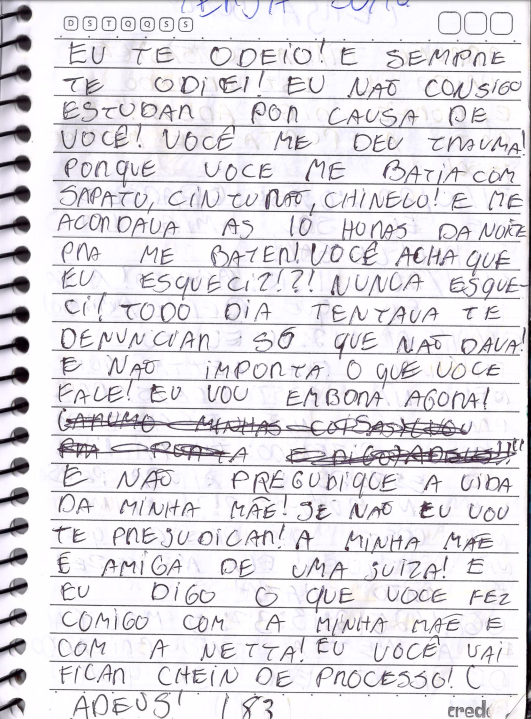 D S T Q Q S S
EU TE ODEIO! E SEMPRE
TE ODIEI! EU NAO CONSIGO
ESTUDAR POR CAUSA DE
VOCÊ! VOCÊ ME DEU TRAUMA!
PORQUE VOCE ME BATIA COM
SAPATU, CINTURÃO, CHINELO! E ME
ACORDAVA AS 10 HORAS DA NOITE
PRA ME BATER! VOCÊ ACHA QUE
EU ESQUECI?!?! NUNCA ESQUE-
CI! TODO DIA TENTAVA TE
DENUNCIAR SÓ QUE NÃO DAVA!
E NÃO IMPORTA O QUE VOCE
FALE! EU VOU EMBORA AGORA!
E NÃO PREGUDIQUE A VIDA
DA MINHA MÃE! SE NÃO EU VOU
TE PREJUDICAR! A MINHA MÃE
É AMIGA DE UMA JUIZA! E
EU DIGO O QUE VOCE FEZ
COMIGO COM A MINHA MÃE E
COM A NETTA! EU VOCÊ VAI
FICAR CHEIN DE PROCESSO!
ADEUS!
cred